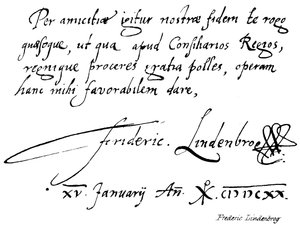 Per amicitiæ igitur nostræ fidem te rogo
quæsoque, ut qua apud Consiliarios Regios,
regnique proceres gratia polles, operam
hanc mihi favorabilem dare,
Frideric. Lindenbrog
XV. Januarij An. CIↃIↃCXX.
Frederic Lindenbrog